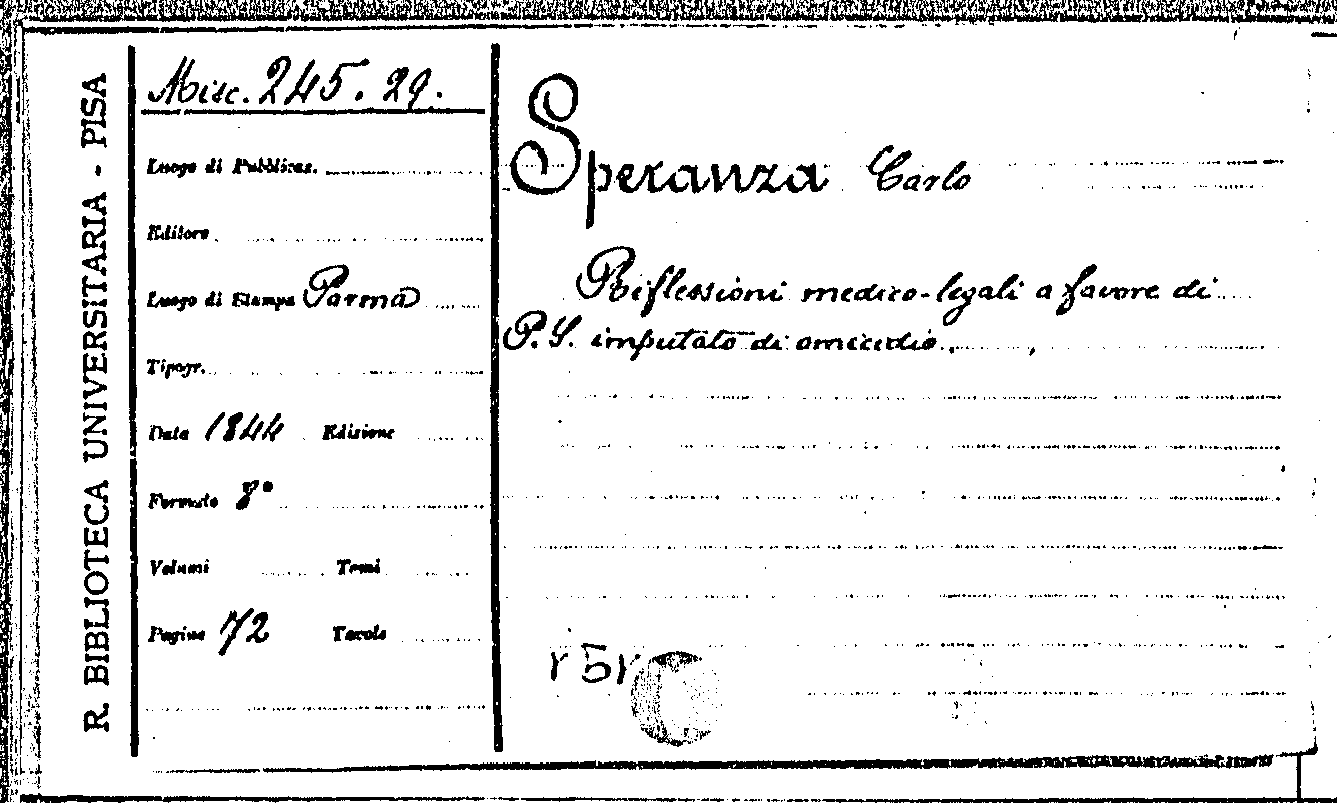 R. BIBLIOTECA UNIVERSITARIA - PISA
Misc. 245. 29.
Luogo di Pubblicaz.
Editore
Luogo di Stampa Parma
Tipogr.
Data 1844 Edizione
Formato 8°
Volumi Tomi
Pagine 72 Tavole
Speranza Carlo
Riflessioni medico-legali a favore di
P. S. imputato di omicidio.